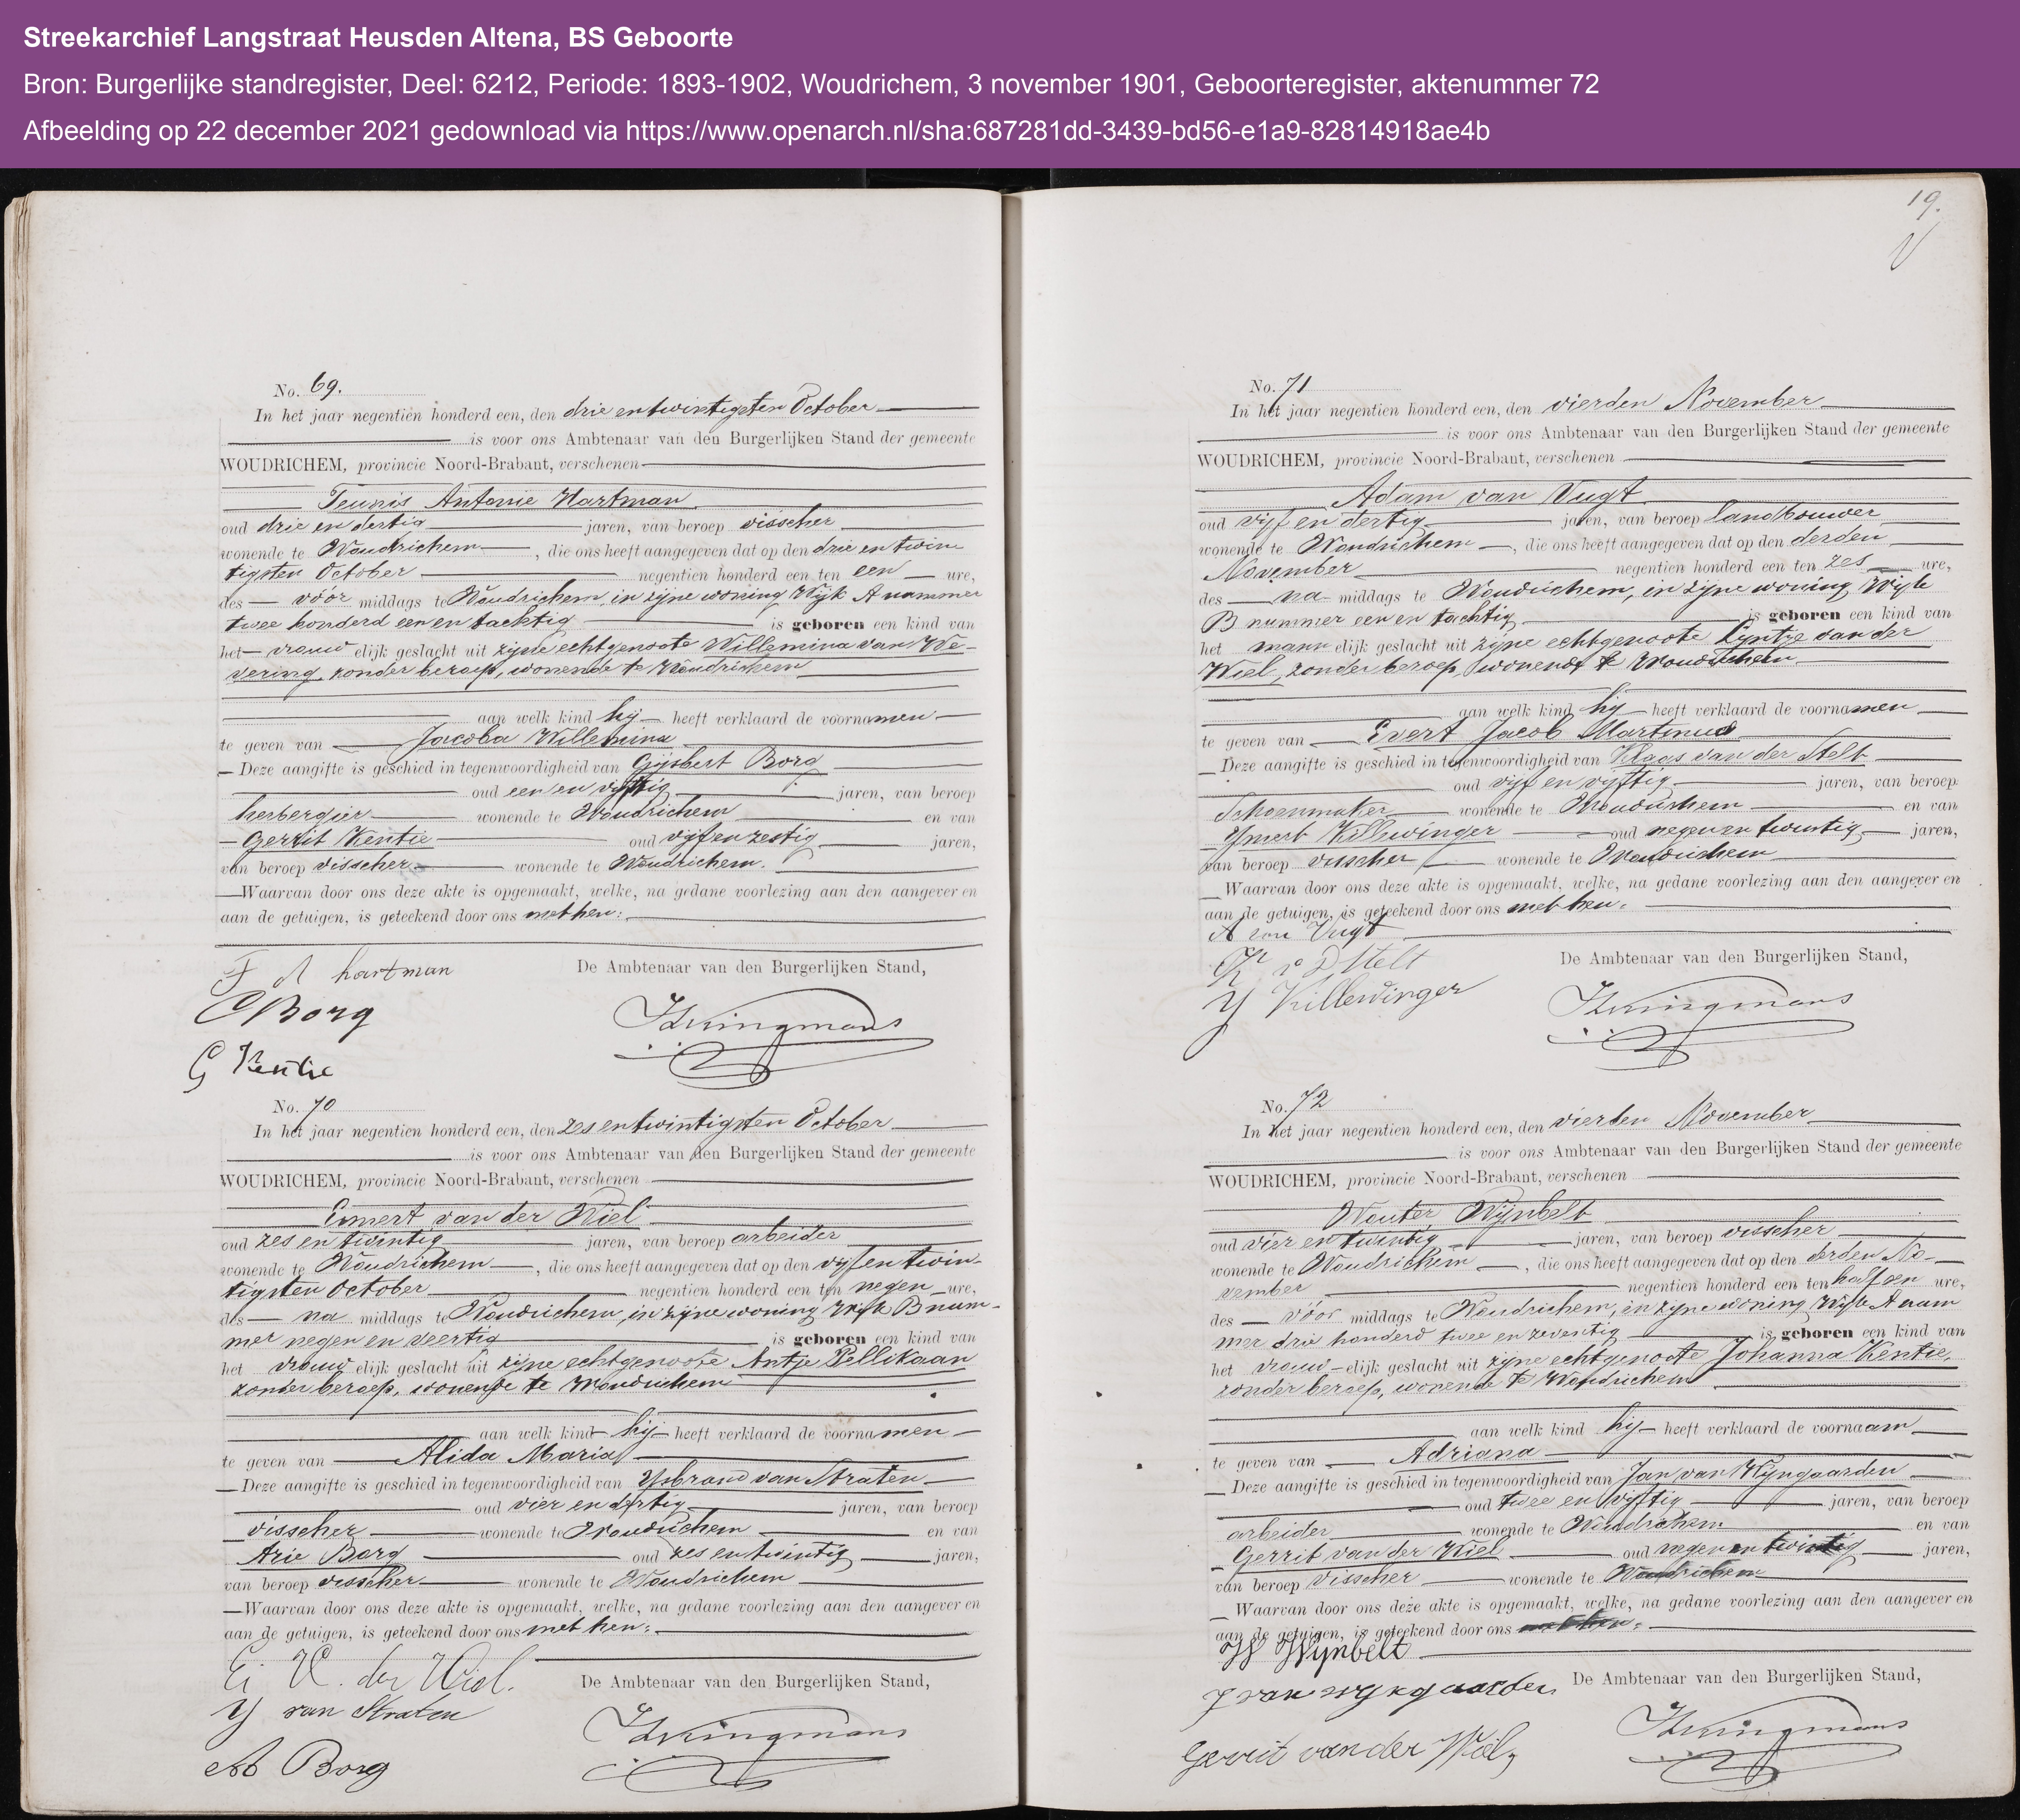 Streekarchief Langstraat Heusden Altena, BS Geboorte
Bron: Burgerlijke standregister, Deel: 6212, Periode: 1893-1902, Woudrichem, 3 november 1901, Geboorteregister, aktenummer 72
Afbeelding op 22 december 2021 gedownload via https://www.openarch.nl/sha:687281dd-3439-bd56-e1a9-82814918ae4b
No. 69.
In het jaar negentien honderd een, den drie en twintigsten October
is voor ons Ambtenaar van den Burgerlijken Stand der gemeente
WOUDRICHEM, provincie Noord-Brabant, verschenen
Teunis Antonie Hartman
oud drie en dertig jaren, van beroep visscher
wonende te Woudrichem, die ons heeft aangegeven dat op den drie en twin
tigsten October negentien honderd een ten een ure,
des vóór middags te Woudrichem, in zijne woning Wijk A nummer
twee honderd een en tachtig is geboren een kind van
het vrouwelijk geslacht uit zijne echtgenoote Willemina van We-
vering, zonder beroep, wonende te Woudrichem
aan welk kind hij heeft verklaard de voornamen
te geven van Jacoba Willemina
Deze aangifte is geschied in tegenwoordigheid van Gijsbert Borg
oud een en vijftig jaren, van beroep
herbergier wonende te Woudrichem en van
Gerrit Kentie oud vijf en zestig jaren,
van beroep visscher wonende te Woudrichem.
Waarvan door ons deze akte is opgemaakt, welke, na gedane voorlezing aan den aangever en
aan de getuigen, is geteekend door ons met hen:
T A hartman
De Ambtenaar van den Burgerlijken Stand,
G Borg
G Kentie
No. 70
In het jaar negentien honderd een, den zes en twintigsten October
is voor ons Ambtenaar van den Burgerlijken Stand der gemeente
WOUDRICHEM, provincie Noord-Brabant, verschenen
Emert van der Wiel
oud zes en twintig jaren, van beroep arbeider
wonende te Woudrichem, die ons heeft aangegeven dat op den vijf en twin-
tigsten October negentien honderd een ten negen ure,
des na middags te Woudrichem, in zijne woning Wijk B num-
mer negen en veertig is geboren een kind van
het vrouwelijk geslacht uit zijne echtgenoote Antje Pellikaan
zonder beroep, wonende te Woudrichem
aan welk kind hij heeft verklaard de voornamen
te geven van Alida Maria
Deze aangifte is geschied in tegenwoordigheid van Ysbrand van Straten
oud vier en dertig jaren, van beroep
visscher wonende te Woudrichem en van
Arie Borg oud zes en twintig jaren,
van beroep visscher wonende te Woudrichem
Waarvan door ons deze akte is opgemaakt, welke, na gedane voorlezing aan den aangever en
aan de getuigen, is geteekend door ons met hen:
V. der Wiel.
De Ambtenaar van den Burgerlijken Stand,
Y van Straten
A Borg
19.
No. 71
In het jaar negentien honderd een, den vierden November
is voor ons Ambtenaar van den Burgerlijken Stand der gemeente
WOUDRICHEM, provincie Noord-Brabant, verschenen
Adam van Vugt
oud vijf en dertig jaren, van beroep landbouwer
wonende te Woudrichem, die ons heeft aangegeven dat op den derden
November negentien honderd een ten zes ure,
des na middags te Woudrichem, in zijne woning Wijk
B nummer een en tachtig is geboren een kind van
het mannelijk geslacht uit zijne echtgenoote Eijntje van der
Wiel, zonder beroep, wonende te Woudrichem
aan welk kind hij heeft verklaard de voornamen
te geven van Evert Jacob Martinus
Deze aangifte is geschied in tegenwoordigheid van Klaas van der Stelt
oud vijf en vijftig jaren, van beroep
Schoenmaker wonende te Woudrichem en van
Ymert Killewinger oud negen en twintig jaren,
van beroep visscher wonende te Woudrichem
Waarvan door ons deze akte is opgemaakt, welke, na gedane voorlezing aan den aangever en
aan de getuigen, is geteekend door ons met hen:
A van Vugt
De Ambtenaar van den Burgerlijken Stand,
K v D Stelt
Y Killewinger
No. 72
In het jaar negentien honderd een, den vierden November
is voor ons Ambtenaar van den Burgerlijken Stand der gemeente
WOUDRICHEM, provincie Noord-Brabant, verschenen
Wouter Wijnbelt
oud vier en twintig jaren, van beroep visscher
wonende te Woudrichem, die ons heeft aangegeven dat op den derden No-
vember negentien honderd een ten half een ure,
des vóór middags te Woudrichem, in zijne woning Wijk A num
mer drie honderd twee en zeventig is geboren een kind van
het vrouwelijk geslacht uit zijne echtgenoote Johanna Kentie,
zonder beroep, wonende te Woudrichem
aan welk kind hij heeft verklaard de voornaam
te geven van Adriana
Deze aangifte is geschied in tegenwoordigheid van Jan van Wijngaarden
oud twee en vijftig jaren, van beroep
arbeider wonende te Woudrichem en van
Gerrit van der Wiel oud negen en twintig jaren,
van beroep visscher wonende te Woudrichem
Waarvan door ons deze akte is opgemaakt, welke, na gedane voorlezing aan den aangever en
aan de getuigen, is geteekend door ons met hen:
W Wijnbelt
De Ambtenaar van den Burgerlijken Stand,
J van wijngaarden
Gerrit van der Wiel